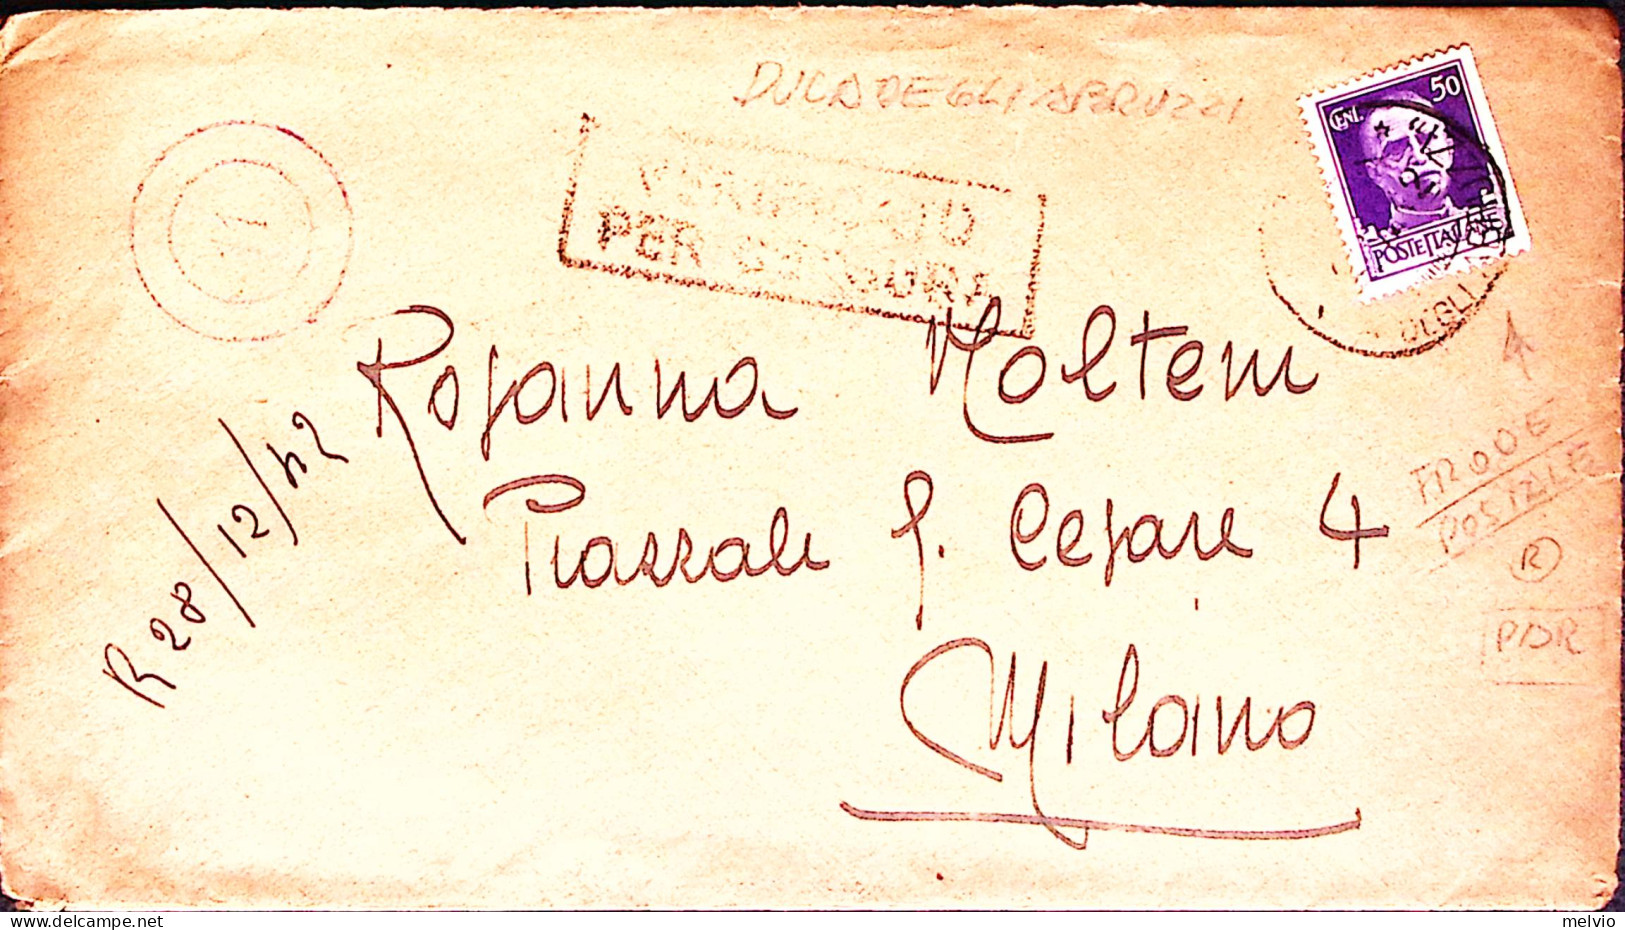 DUCA DEGLI ABRUZZI
CENT. 50
POSTE ITALIANE
VERIFICATO
PER CENSURA
11
DEGLI
Rosanna Molteni
Piazzale G. Cesare 4
Milano
R 28/12/42
FRODE
POSTALE
R
PDR
delcampe.net
melvio